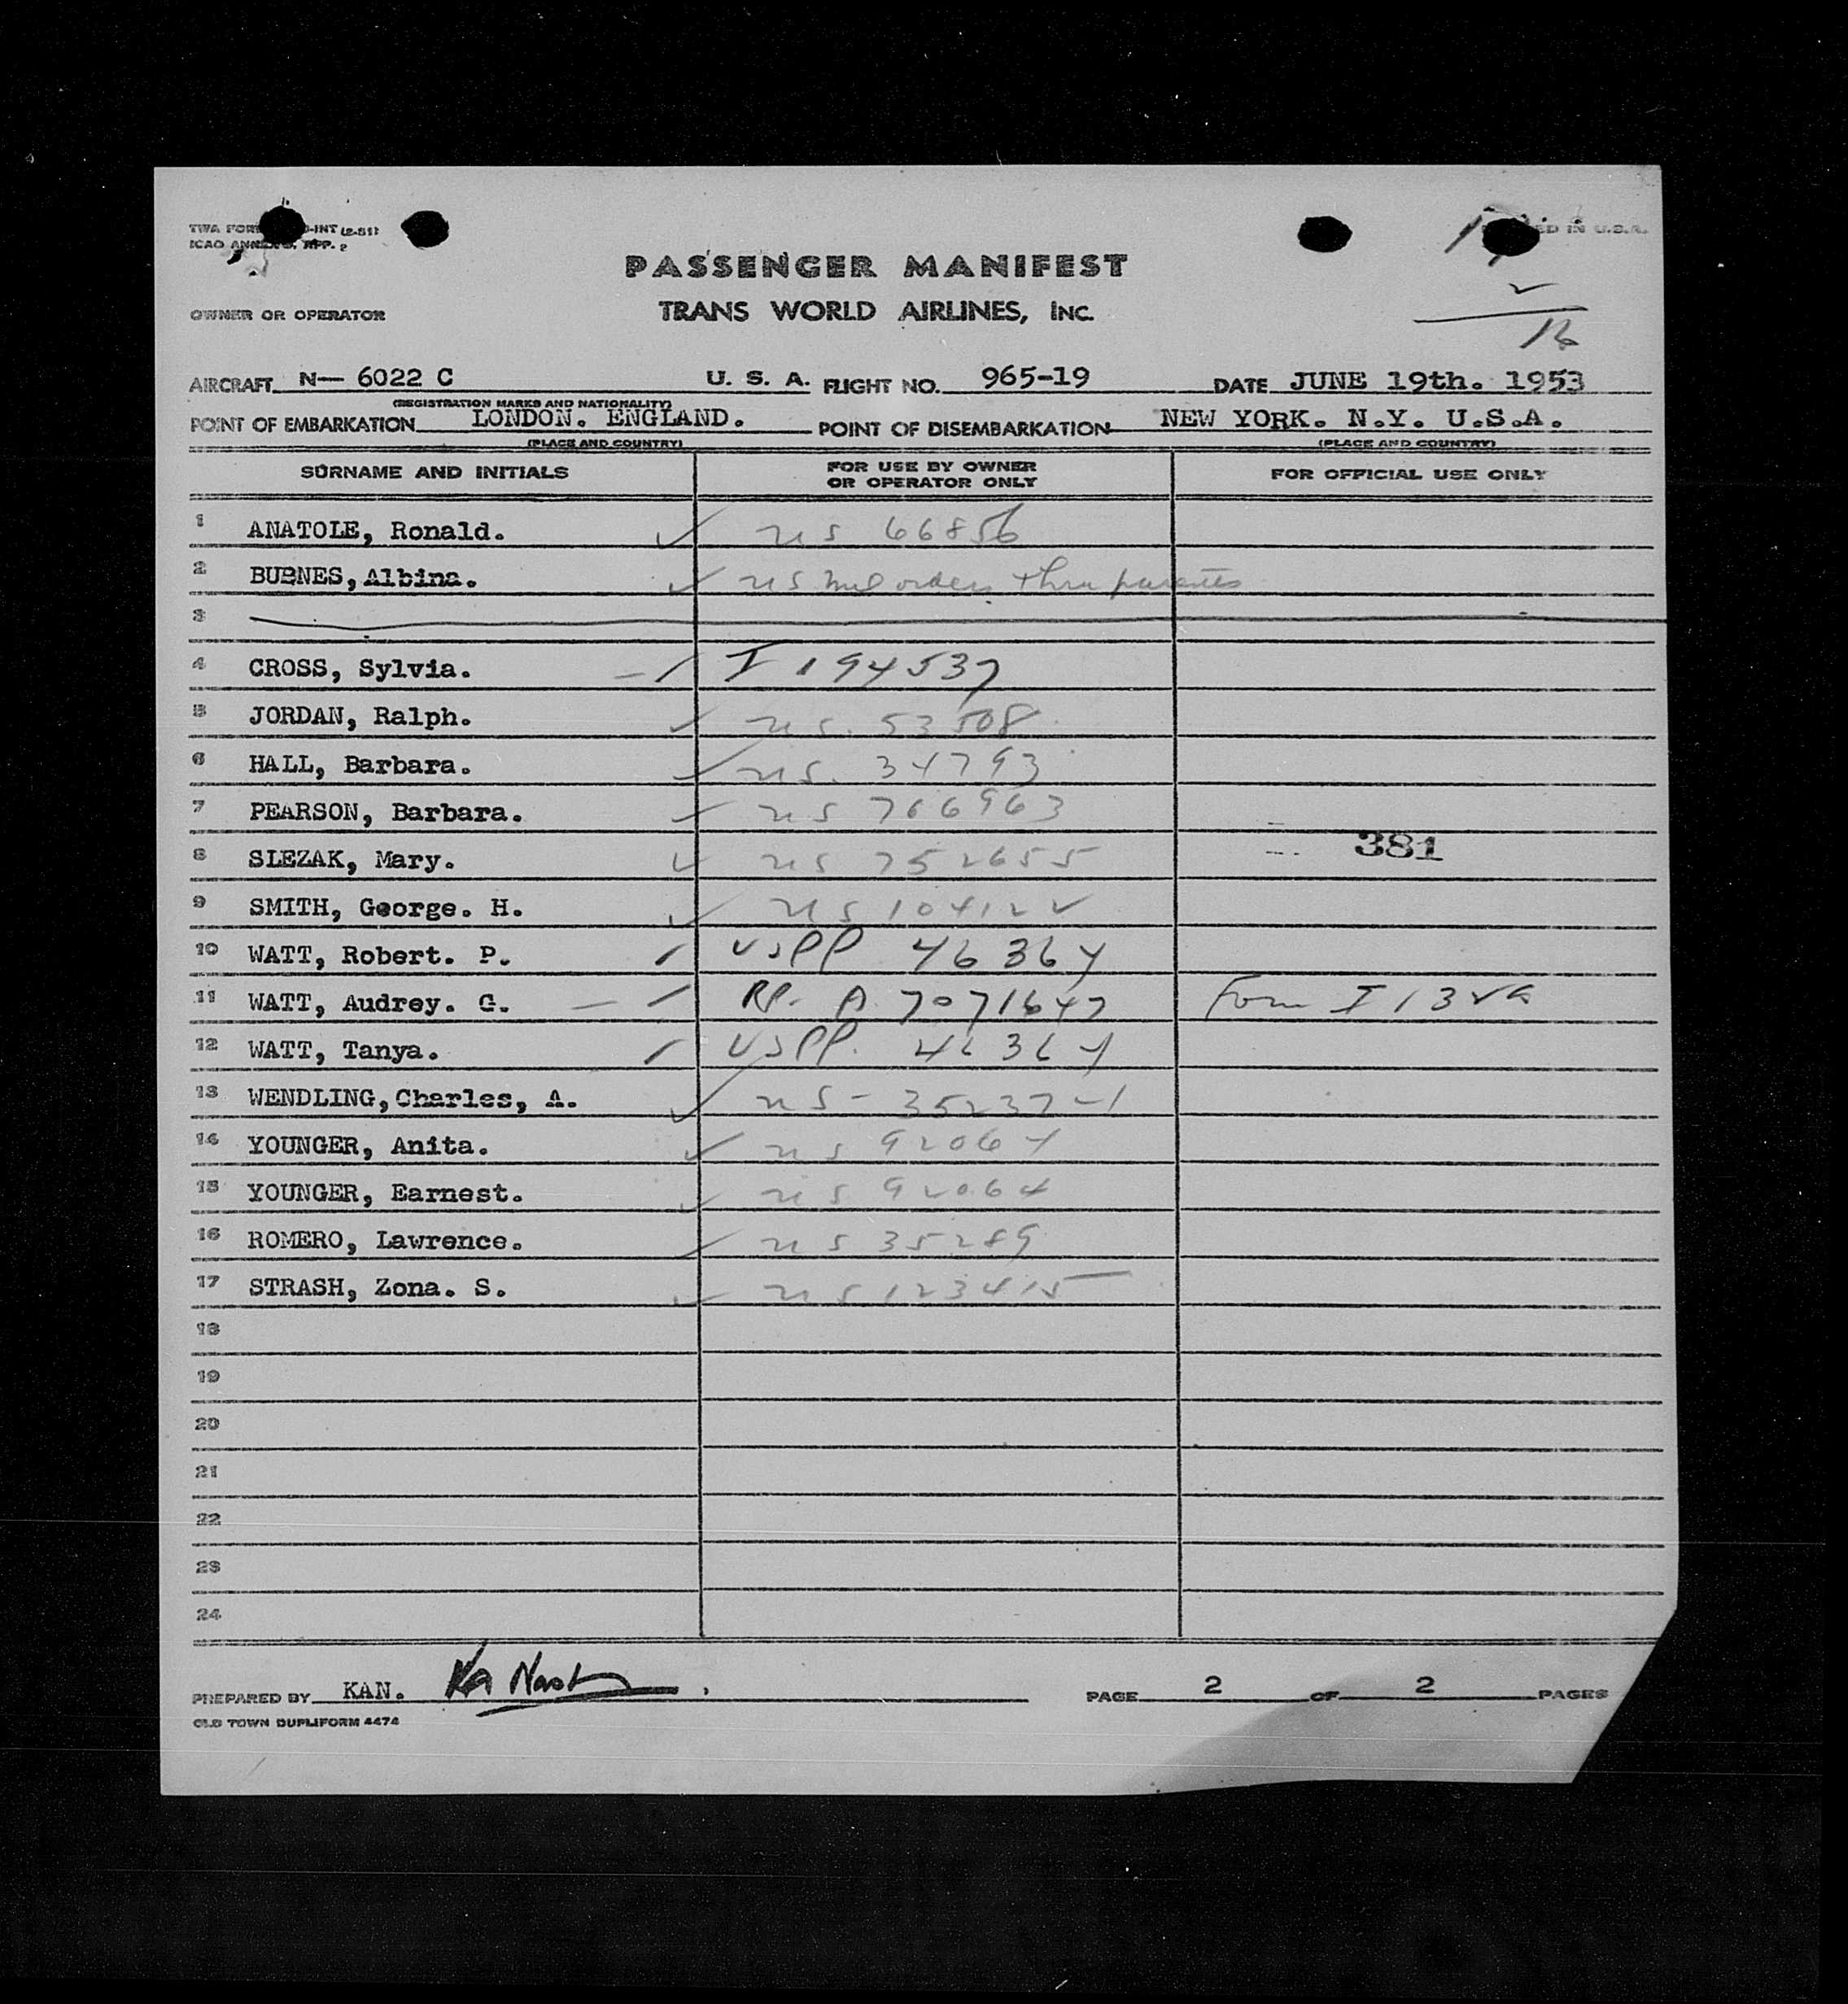 TWA FORM -INT (2-51)
ICAO ANNEX 9, APP. 2
ED IN U.S.A.
PASSENGER MANIFEST
OWNER OR OPERATOR
TRANS WORLD AIRLINES, INC.
16
AIRCRAFT N— 6022 C U. S. A. FLIGHT NO. 965-19 DATE JUNE 19th. 1953
(REGISTRATION MARKS AND NATIONALITY)
POINT OF EMBARKATION LONDON. ENGLAND. POINT OF DISEMBARKATION NEW YORK. N.Y. U.S.A.
(PLACE AND COUNTRY) (PLACE AND COUNTRY)
SURNAME AND INITIALS FOR USE BY OWNER OR OPERATOR ONLY FOR OFFICIAL USE ONLY
1 ANATOLE, Ronald. ✓ US 66856
2 BURNES, Albina. ✓ US mil orders thru parents
3
4 CROSS, Sylvia. I 194537
5 JORDAN, Ralph. ✓ US. 53508
6 HALL, Barbara. ✓ US. 34793
7 PEARSON, Barbara. ✓ US 766963
8 SLEZAK, Mary. ✓ US 752655 381
9 SMITH, George. H. ✓ US 104122
10 WATT, Robert. P. USPP 46364
11 WATT, Audrey. G. RP. A 7071647 Form I 132a
12 WATT, Tanya. USPP. 46364
13 WENDLING, Charles, A. ✓ US - 352371
14 YOUNGER, Anita. ✓ US 92064
15 YOUNGER, Earnest. ✓ US 92064
16 ROMERO, Lawrence. ✓ US 35289
17 STRASH, Zona. S. ✓ US 123415
18
19
20
21
22
23
24
PREPARED BY KAN. PAGE 2 OF 2 PAGES
OLD TOWN DUPLIFORM 4474